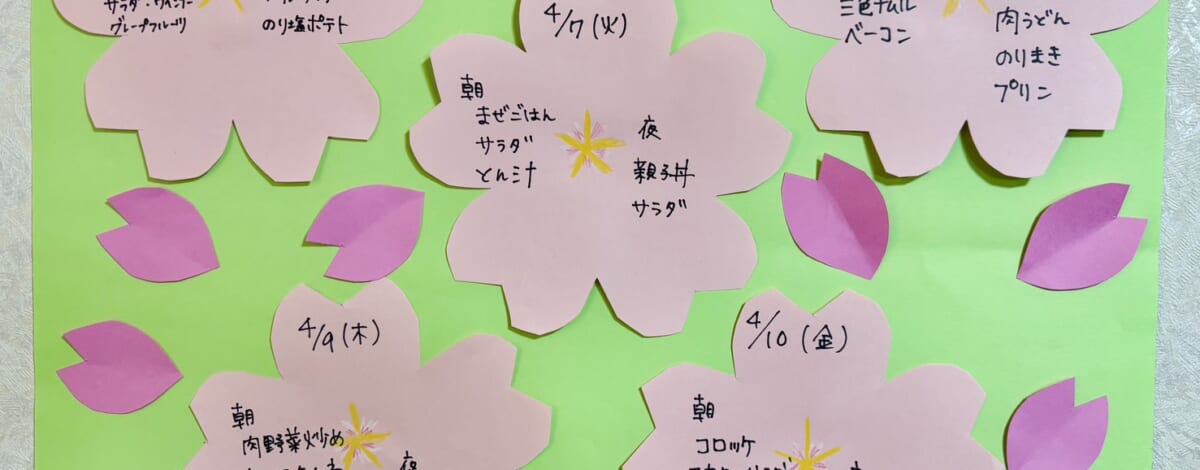 グレープフルーツ
のり塩ポテト
4/7(火)
朝
まぜごはん
サラダ
とん汁
夜
親子丼
サラダ
三色ナムル
ベーコン
肉うどん
のりまき
プリン
4/9(木)
朝
肉野菜炒め
夜
4/10(金)
朝
コロッケ